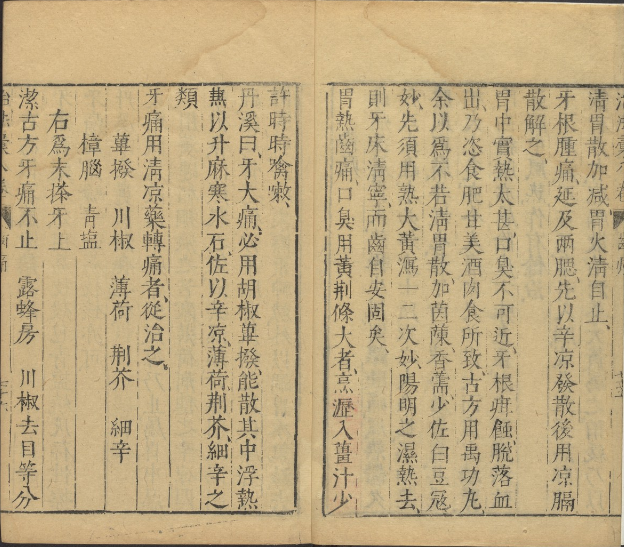 清胃散加减胃火清自止
牙根腫痛延及兩腮先以辛凉發散後用凉膈
散解之
胃中實熱太甚口臭不可近牙根疳蝕脱落血
出乃恣食肥甘美酒肉食所致古方用禹功丸
余以爲不若清胃散加茵蔯香薷少佐白豆寇
妙先須用熟大黄瀉一二次妙陽明之濕熱去
則牙床清寧而齒自安固矣
胃熱齒痛口臭用黄荆條大者烹瀝入薑汁少
許時時噙嗽
丹溪曰牙大痛必用胡椒蓽撥能散其中浮熱
熱以升麻寒水石佐以辛凉薄荷荆芥細辛之
類
牙痛用清凉藥轉痛者從治之
蓽撥 川椒 薄荷 荆芥 細辛
樟腦 青塩
右爲末搽牙上
潔古方牙痛不止 露蜂房 川椒去目等分